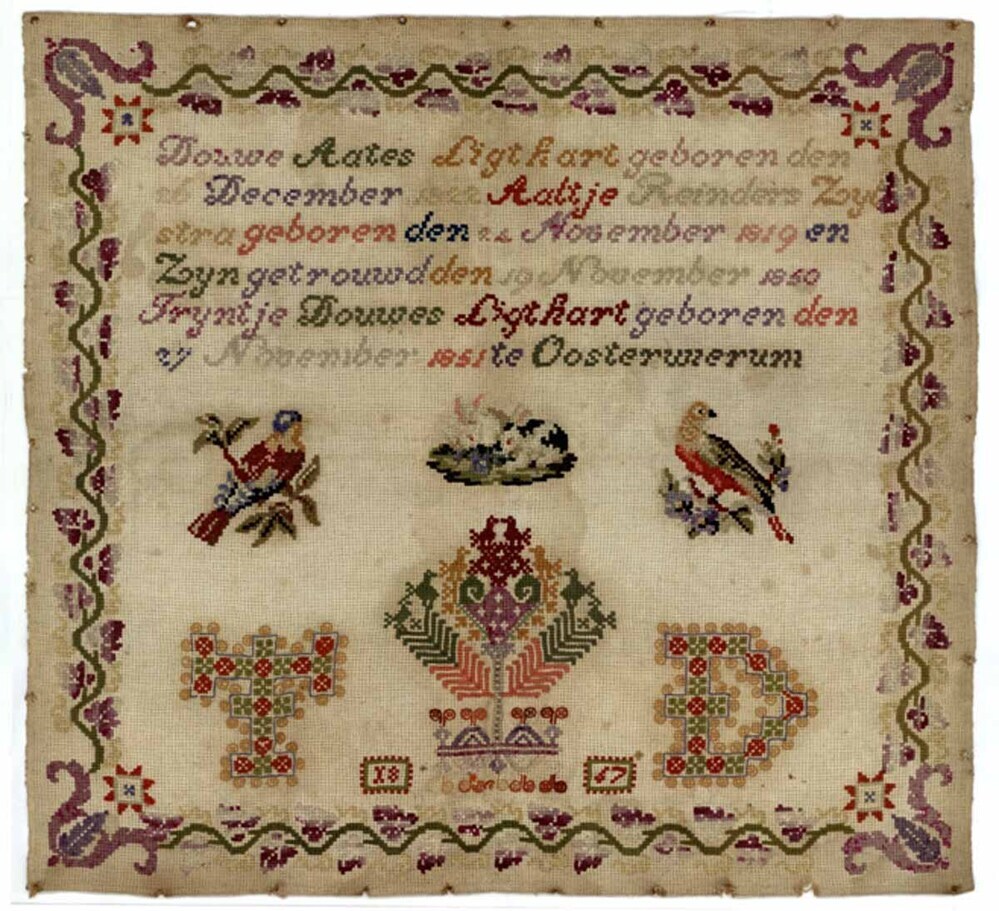 Douwe Aates Ligthart geboren den
26 December 1822 Aaltje Reinders Zyl
stra geboren den November 1819 en
Zyn getrouwd den 19 November 1850
Tryntje Douwes Ligthart geboren den
27 November 1851 te Oosterwierum
T D
18 67